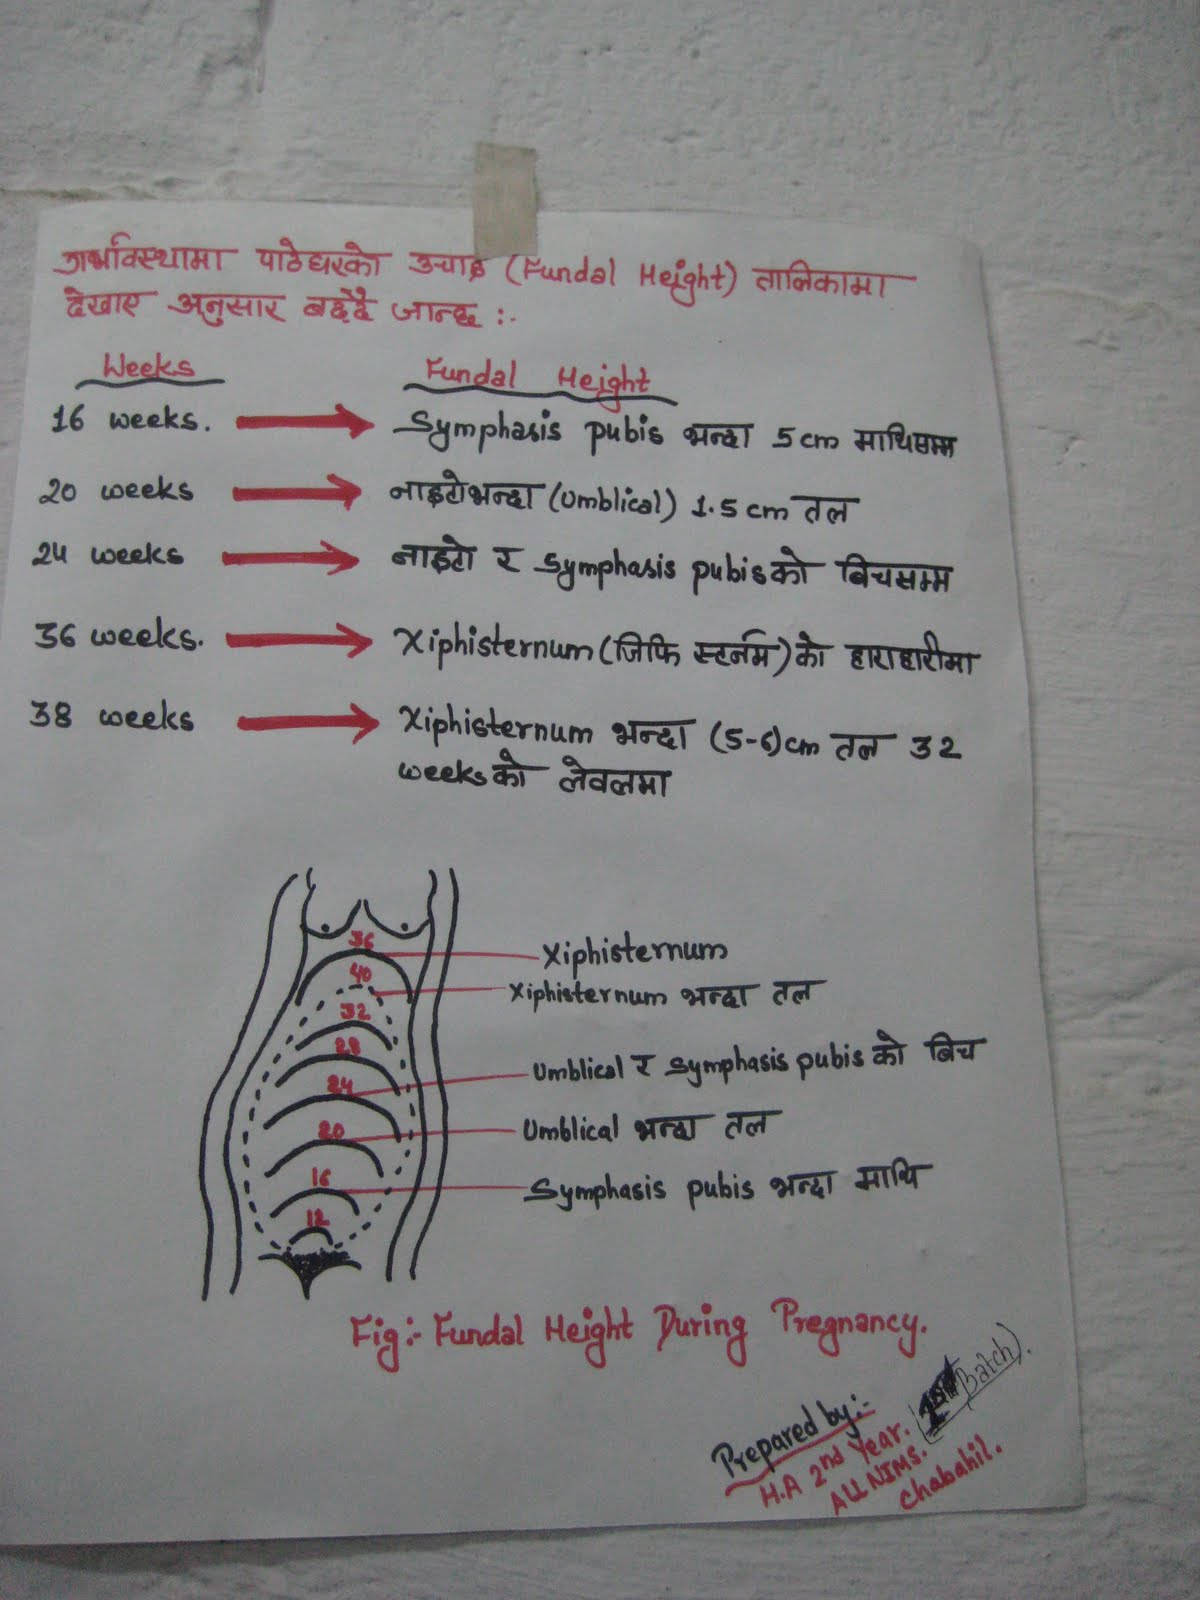 गर्भावस्थामा पाठेघरको उचाई (Fundal Height) तालिकामा
देखाए अनुसार बढ्दै जान्छ :-
Weeks Fundal Height
16 weeks. Symphasis pubis भन्दा 5 cm माथिसम्म
20 weeks नाइटोभन्दा (Umblical) 1.5 cm तल
24 weeks नाइटो र Symphasis pubis को बिचसम्म
36 weeks. Xiphisternum (जिफि स्टर्नम) को हाराहारीमा
38 weeks Xiphisternum भन्दा (5-6)cm तल 32
weeks को लेवलमा
36
Xiphisternum
40
Xiphisternum भन्दा तल
32
28
Umblical र Symphasis pubis को बिच
24
Umblical भन्दा तल
20
Symphasis pubis भन्दा माथि
16
12
Fig:- Fundal Height During Pregnancy.
Prepared by:-
H.A 2nd Year. Batch).
ALL NIMS.
Chabahil.